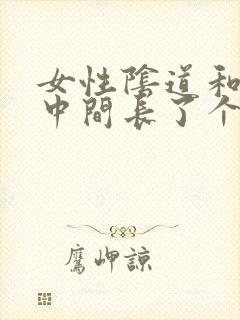 女性陰道和
中間長了个
鷹岬諒